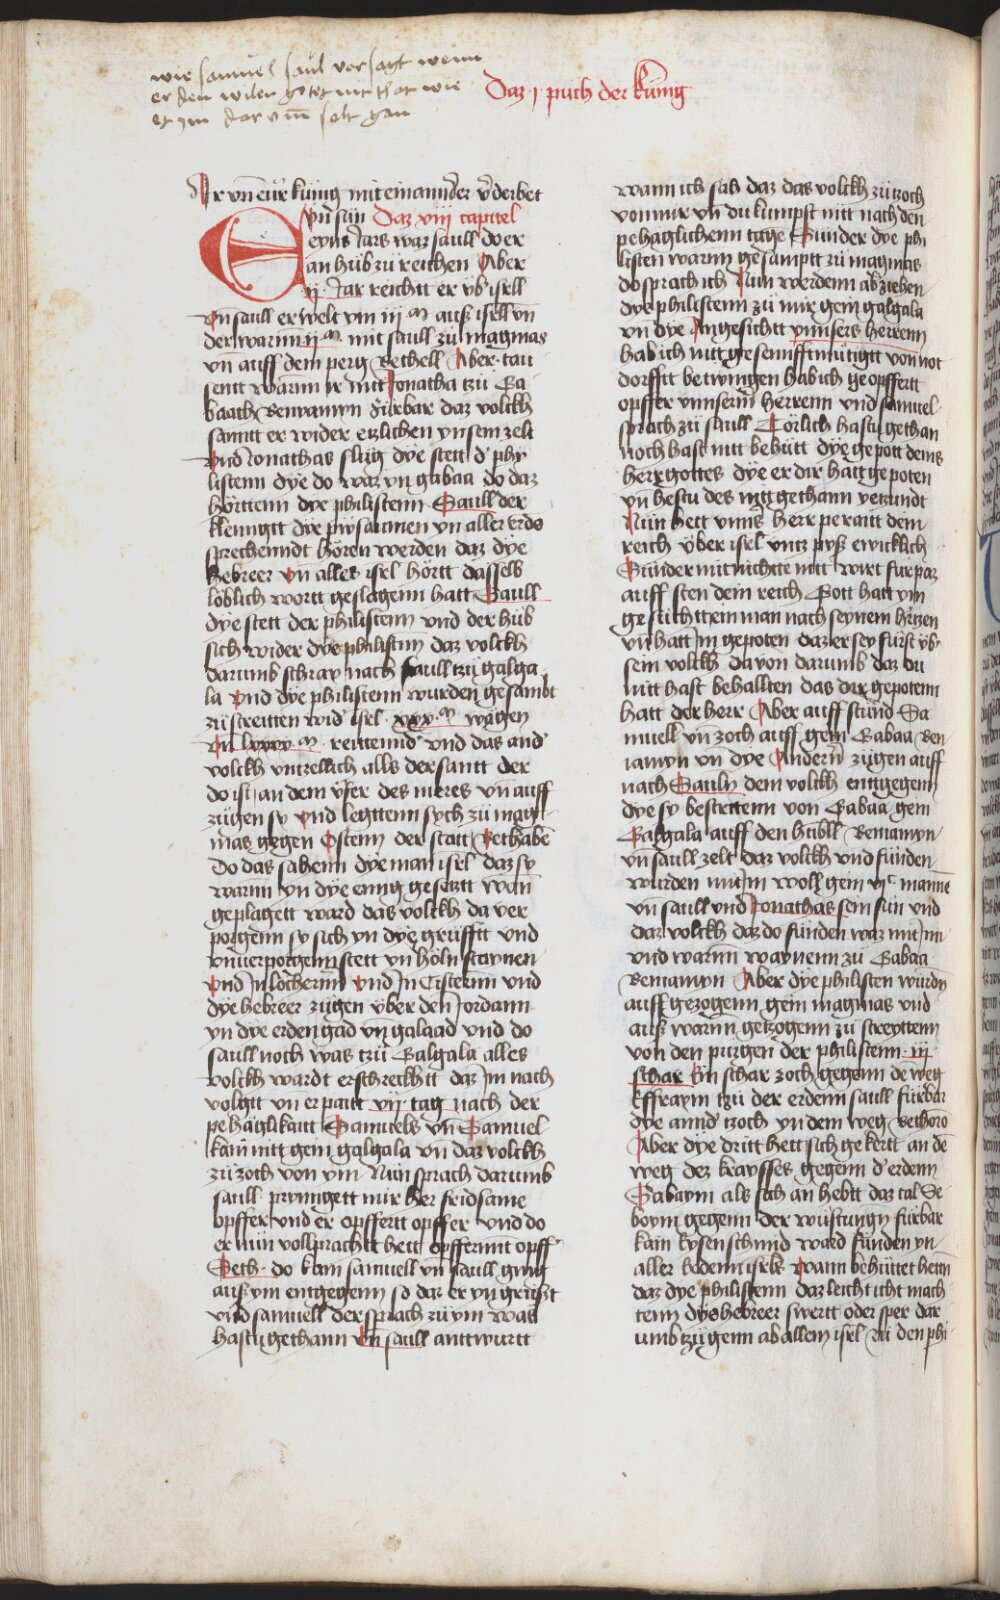 wie samuel saul versagt wenn
er den wilen gotes nit that wie
es ym dar vm solt gan
Daz j puch der kunig
Ir vn eur kunig mit einannder verderbet
ynd syn Daz xiii capitel
Eeyns Jars waz saull do er
an hub zu reichen Aber
ij Jar reichtt er vber isrll
Vn saull erwelt vm iii m auß isrll vn
der warnn ij m mit saull zu magmas
vn auff dem perg Bethell Aber tau
sentt warnn ir mit Jonatha tzu Ga
baath Benyamyn fürbar daz volckh
sanntt er wider etzlichen yn sein zelt
Vnd Jonathas slug dye stett d' phy
listenn dye do waz yn gabaa do daz
hörttenn dye philistenn Saull der
klenngtt dye pusaunen yn aller erde
sprechenndt hören werden daz dye
hebreer vn alles isrl hörtt dasselb
löblich wortt geslagenn hatt Saull
dye stett der philistenn vnd der hub
sich wider dye philistenn daz volckh
darumb schray nach saull tzu galga
la vnd dye philistenn wurden gesambt
zu streitten wid' isrl xxx m wägen
vn lxxx m reittennd vnd das and'
volckh vnzellich alls der santt der
do ist an dem vfer des meres vn auff
zugen sy vnd legttenn sych zu mag
mas gegen Ostenn der statt Bethaben
Do das sahenn dye man isrl daz sy
warnn yn dye enng gesetzt wan
geplagett ward das volckh da ver
porgenn sy sich yn dye grufftt vnd
yn verporgenn stett yn höln staynen
vnd Jn löchernn vnd Jn Cisternn vnd
dye hebreer zugen vber den Jordann
yn dye erden gad vn galaad vnd do
saull noch was tzu Galgala alles
volckh wardt erschreckhtt daz Jm nach
volgtt vn er paitt vij tag nach der
pehäglikaitt Samuels vn Samuel
kam nitt gein galgala vn daz volckh
zu zoch von ym Nun sprach darumb
saull prynngett mir her fridsame
opffer vnd er opffertt opffer vnd do
er nun vollprachtt hett opffernnt opff'
Seth do kam samuell vn saull ging
auß ym entgegenn so daz er yn grußt
vnd samuell der sprach zu ym was
hastu gethann vn saull anttwurtt
wann ich sah daz das volckh zu zoch
von mir vn du kumpst nitt nach den
pehaglichenn tage Sunder dye phi
listen warnn gesamptt zu magmas
do sprach ich Nun werdenn ab ziehen
dye philistenn zu mir gein galgala
vn dye Angesichtt vnnsers herrenn
hab ich nitt gesennfftmutigtt von not
dorfftt betwingen hab ich geopffertt
opffer vnnserm herrenn vnd samuel
sprach zu saull Torlich hastu gethan
noch hast nitt behutt dye gepott deins
herr gottes dye er dir hatt gepoten
vn hestu des nitt gethann yetzundt
Nun hett vnns herr peraitt dein
reich vber isrl vntz pyß ewicklich
Sunder mit nichte nitt wirt fürpaz
auff sten dein reich Gott hatt ym
gesuchtt ein man nach seynem hertzen
vn hatt Jm gepoten daz er sey furst vb'
sein volckh da von darumb daz du
nitt hast behallten das dir gepotenn
hatt der herr Aber auff stund Sa
muell vn zoch auff gein Gabaa Ben
iamyn vn dye Andern zugen auff
nach Sauln dem volckh enttgegenn
dye sy bestrittenn von Gabaa gem
Galgala auff den hubll Beniamyn
vn saull zelt daz volckh vnd funden
wurden mit Jm woll gein vjc manne
vn saull vnd Jonathas sein sun vnd
daz volckh daz do funden waz mit Jm
vnd warnn waynenn zu Gabaa
Beniamyn Aber dye philisten wurdn
auff gezogenn gein magmas vnd
auß warnn getzogenn zu streyttenn
von den purgen der philistenn iij
schar Ein schar zoch gegenn de weg
Effraym tzu der erdenn saull fürbar
dye annd' tzoch yn dem weg Bethoron
Aber dye dritt hett sich gekertt an de
weg dez kraysses gegenn d' erdenn
Sabaym als sich an hebtt daz tal Se
boym gegenn der wustungn fürbar
kain eysenschmid ward funden yn
aller erdenn isrls wann behuttet henn
daz dye philistenn daz leicht icht mach
tenn dye hebreer swertt oder sper dar
umb tzugenn ab allem isrl zu den phi